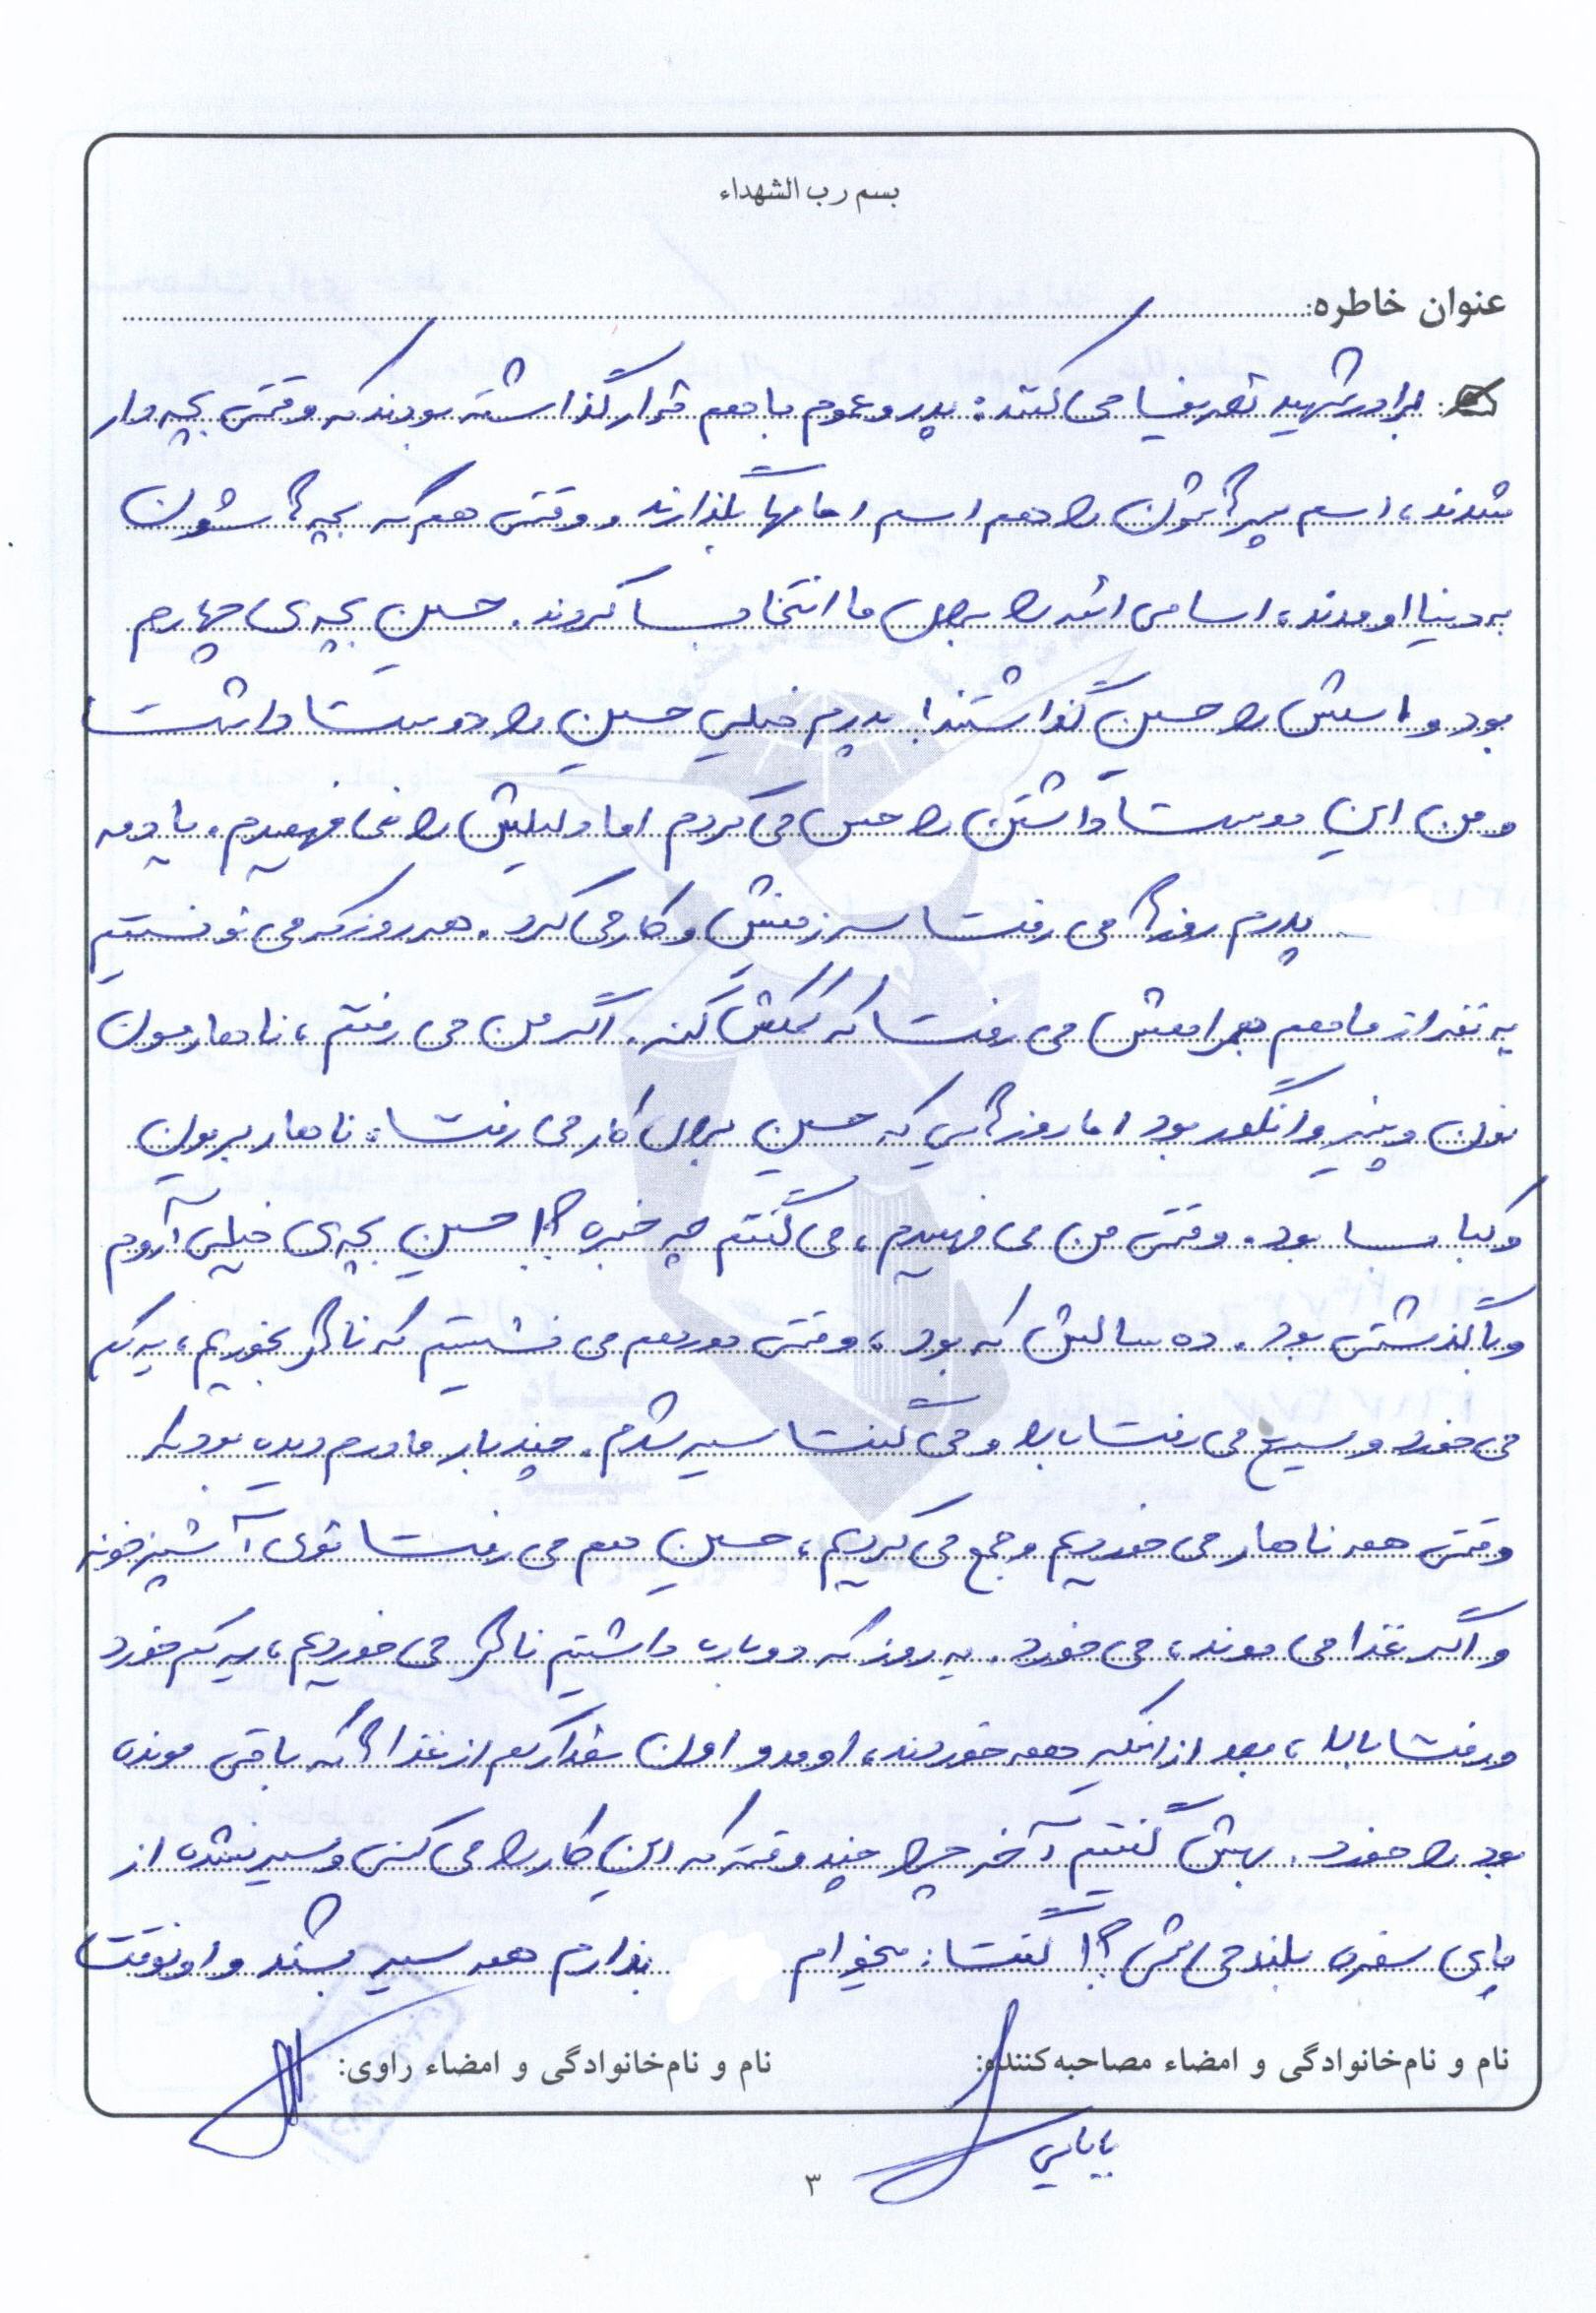 بسم رب الشهداء
عنوان خاطره:
برادر شهید تعریف می کنند: پدر و عموم با هم قرار گذاشته بودند که وقتی بچه دار
شدند، اسم پسرهاشون را هم اسم امامها بگذارند و وقتی هم که بچه هاشون
به دنیا اومدند، اسامی ائمه را برای ما انتخاب کردند. حسین بچه ی چهارم
بود و اسمش را حسین گذاشتند! پدرم خیلی حسین را دوست داشت
و من این دوست داشتن را حس می کردم اما دلیلش را نمی فهمیدم. یادمه
پدرم روزها می رفت سر زمینش و کار می کرد. هر روز که می تونستیم
یه نفر از ما هم همراهش می رفت که کمکش کنه. اگر من می رفتم، ناهارمون
نون و پنیر و انگور بود اما روزهایی که حسین برای کار می رفت، ناهار بریون
و کباب بود. وقتی من می فهمیدم، می گفتم چه خبره؟! حسین بچه ی خیلی آروم
و با گذشتی بود. ده سالش که بود، وقتی دور هم می نشستیم که ناهار بخوریم، یه کم
می خورد و سریع می رفت بالا و می گفت سیر شدم. چند بار مادرم دیده بود که
وقتی همه ناهار می خوردیم و جمع می کردیم، حسین هم می رفت توی آشپزخونه
و اگر غذا می موند، می خورد. یه روز که دوباره داشتیم ناهار می خوردیم، یه کم خورد
و رفت بالا، بعد از اینکه همه خوردند، اومد و اون مقدار کم از غذا ها که باقی مونده
بود را خورد. بهش گفتیم آخر چرا چند وقته که این کار را می کنی و سیر نشده از
پای سفره بلند می شی؟! گفت: میخوام بذارم همه سیر بشند و اونوقت
نام و نام‌خانوادگی و امضاء مصاحبه‌کننده:
نام و نام‌خانوادگی و امضاء راوی:
بابایی
۳